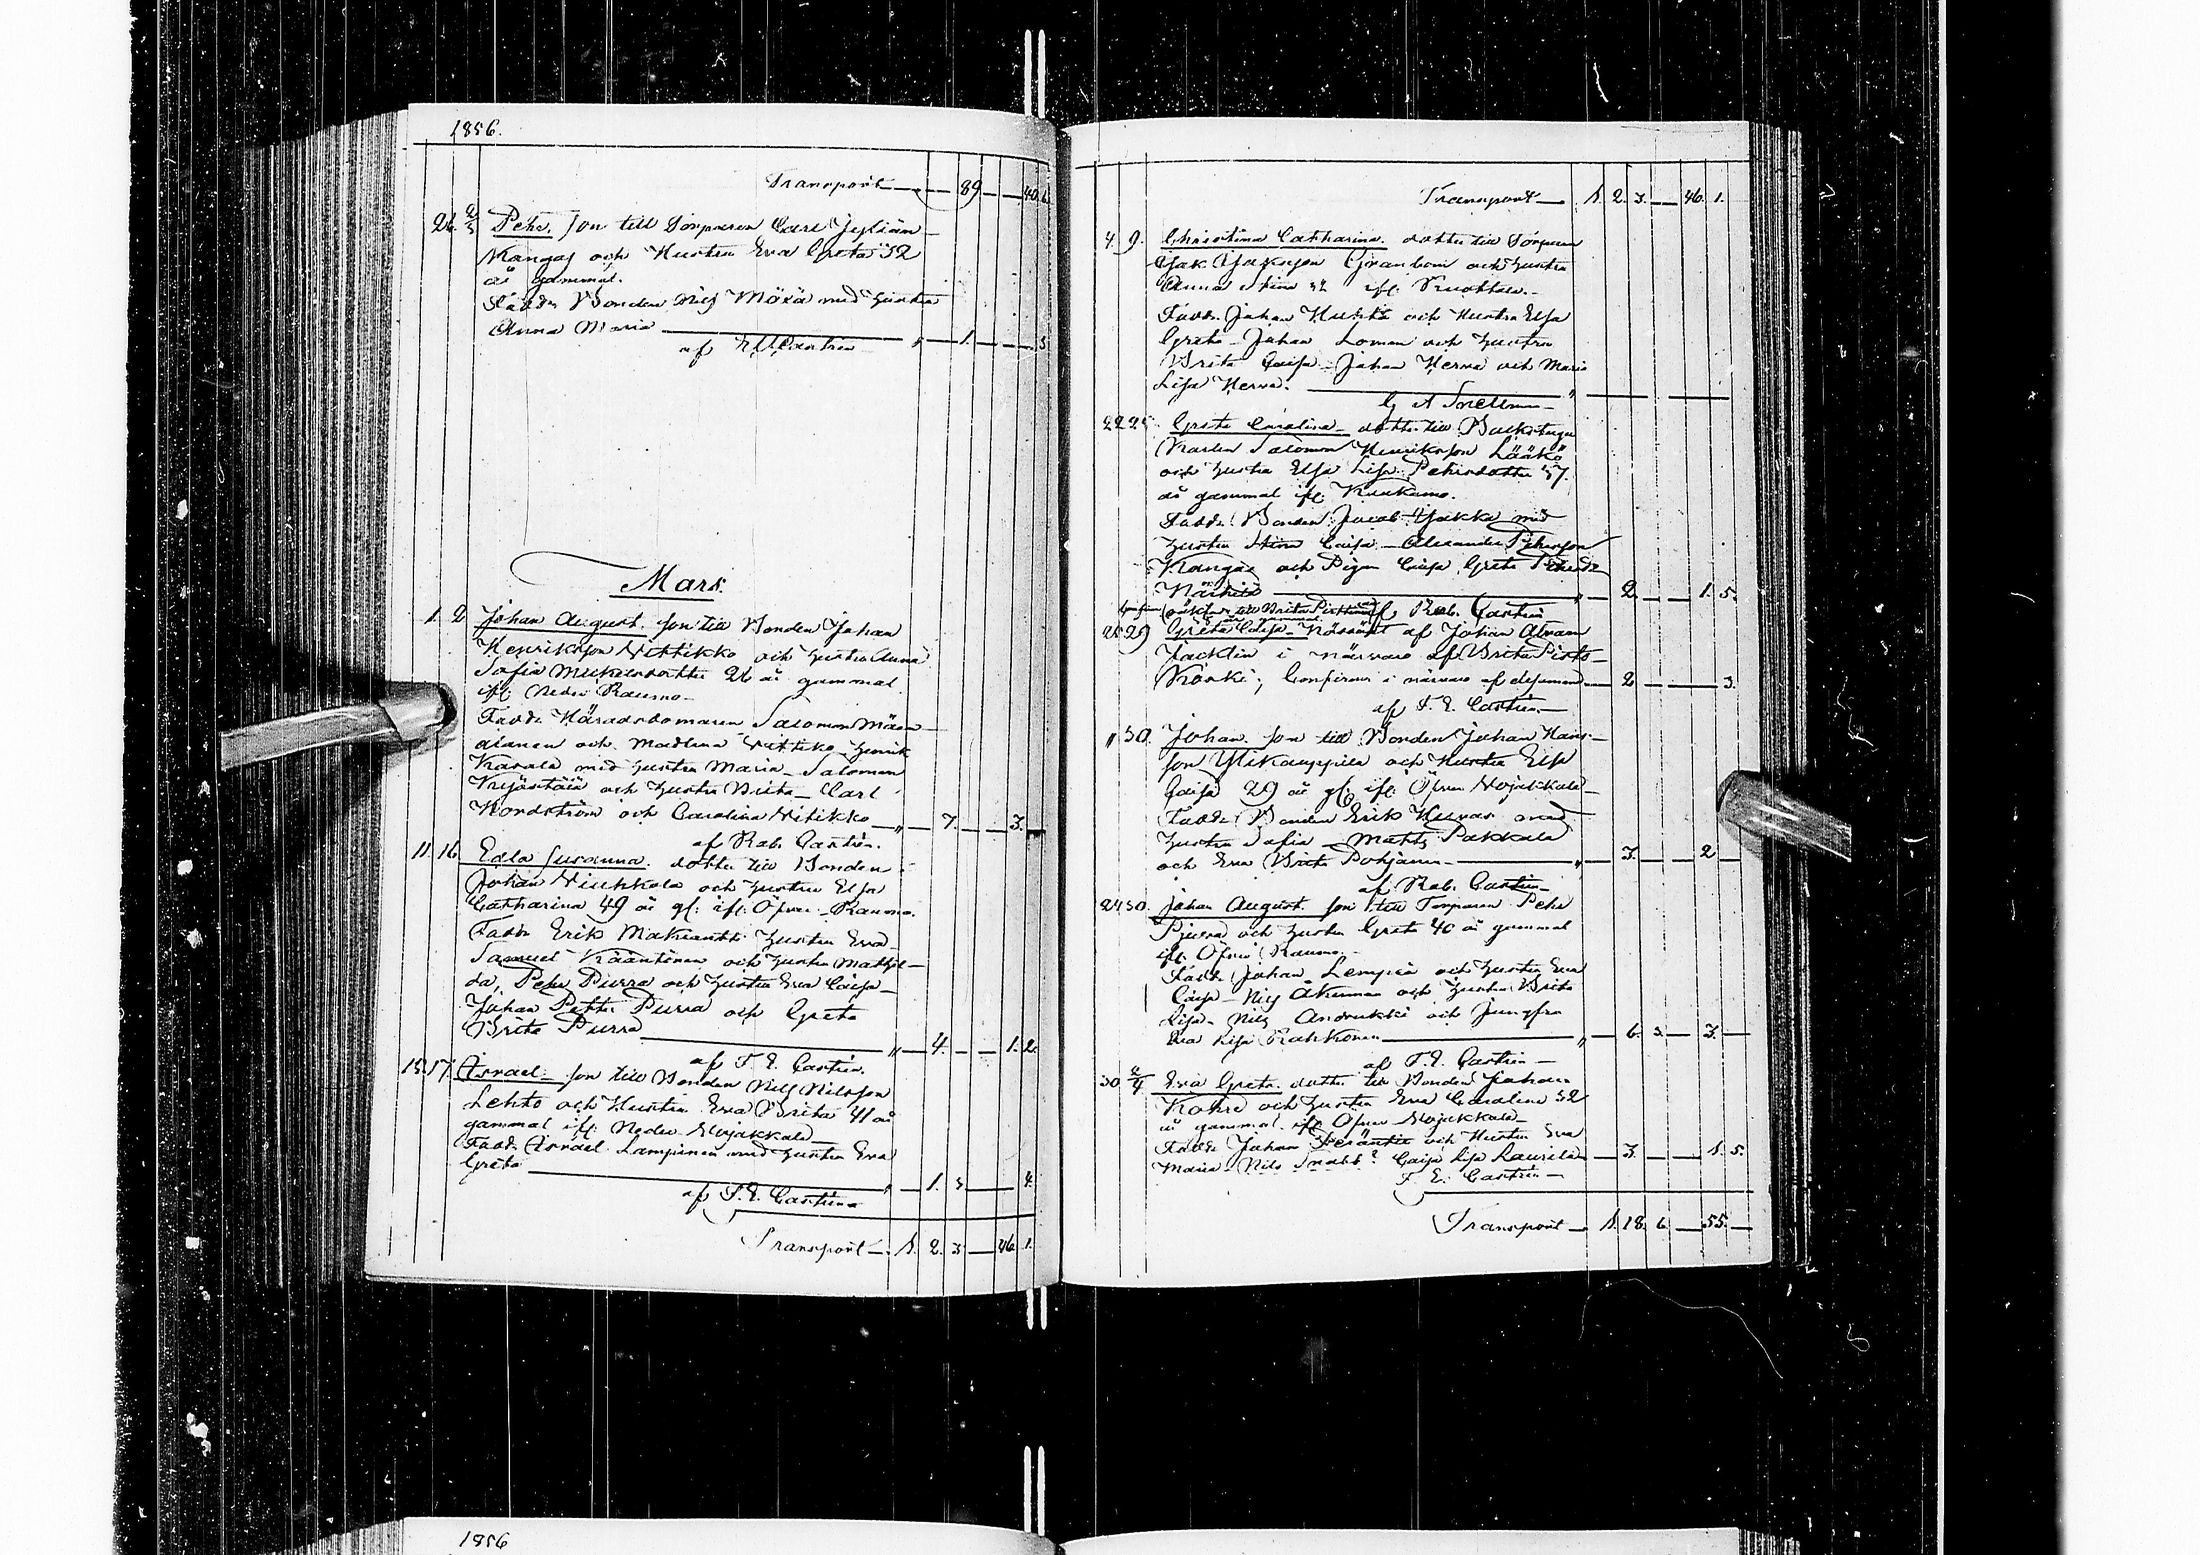 1856.
Transport — 89 — 40. 6.
26. 2/3 Pehr. son till Torparen Carl
Kangas och Hustru Eva Greta 32
år gammal.
Fadd. Bonden Nils Määtä med hustru
Anna Maria — 1. — 3.
af Castrén
Mars.
1. 2 Johan August. son till Bonden Johan
Henriksson Vittikko och hustru Anna
Sofia 26 år gammal
ifr. Nedre Raumo
Fadd. Häradsdomaren Salomon
och Madlena Vittikko Henrik
Karvala med hustru Maria Salomon
och hustru Brita Carl
Nordström och Carolina Vitikko — 7. — 3.
af Rab. Castrén.
11. 16 Edla Susanna. dotter till Bonden
Johan Niukkala och hustru Elsa
Catharina 49 år gl: ifr. Öfver Raumo.
Fadd. Erik hustru Eva
Samuel Kääntinen och hustru Mathil-
da, Pehr Purra och hustru Eva Caisa
Johan Petter Purra och Greta
Brita Purra — 4. — 1. 2.
af F. E. Castrén.
15. 17. Israel. son till Bonden Nils Nilsson
Lehto och Hustru Eva Brita 41 år
gammal ifr. Neder Vojakkala
Fadd. Israel Lampinen med hustru Eva
Greta — 1. 3 — 4.
af F. E. Castrén
Transport — 1. 2. 3 — 46. 1.
Transport — 1. 2. 3. — 46. 1.
4. 9. Christina Catharina. dotter till Torparen
Isak Isaksson Granbom och hustru
Anna Stina 32 ifr.
Fadd. Johan Huhta och Hustru Elsa
Greta Johan Loman och hustru
Brita Caisa Johan Herva och Maria
Lisa Herva.
G A Snellman
22 25. Greta Carolina dotter till Backstugu
Karlen Salomon Henriksson Lääkö
och hustru Elsa Lisa Pehrsdotter 37.
år gammal ifr. Kuukamo.
Fadd. Bonden Jacob Yakka med
hustru Stina Caisa Alexander Pehrsson
Kangas och Pigan Caisa Greta
— 2. — 1. 5.
af Rab. Castrén
25 29 Greta Caisa af Johan Abram
Jacklin i närvaro af Brita
i närvaro af — 2 — 3.
af F. E. Castrén
" 30. Johan. son till Bonden Johan Hans-
son Ylikauppila och Hustru Elsa
Caisa 29 år gl: ifr. Öfver Vojakkala
Fadd. Bonden Erik med
hustru Sofia Matts Pakkala
och Eva Brita Pohjanen — 3. — 2
af Rab. Castrén
24 30. Johan August. son till Torparen Pehr
och hustru Greta 40 år gammal
ifr. Öfver Raumo.
Fadd. Johan Lempiä och hustru Eva
Caisa Nils Åkerman och hustru Brita
Lisa. Nils Andrukki och Jungfru
Eva Lisa Rahkonen — 6. 3 — 3.
af F. E. Castrén
30 2/4 Eva Greta. dotter till Bonden Johan
Kohre och hustru Eva Carolina 32
år gammal. ifr. Öfver Vojakkala
Fadd. Johan och Hustru Eva
Maria Nils Snabb? Caisa Lisa Laurila — 3. — 1. 5.
F. E. Castrén
Transport — 1. 18. 6 — 55. —
1856